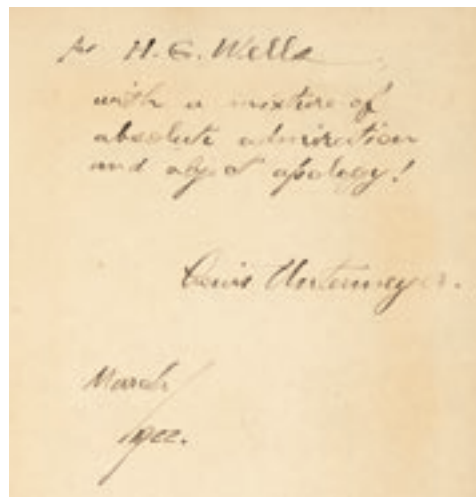 for H. G. Wells
with a mixture of
absolute admiration
and abject apology!
Louis Untermeyer.
March
1922.